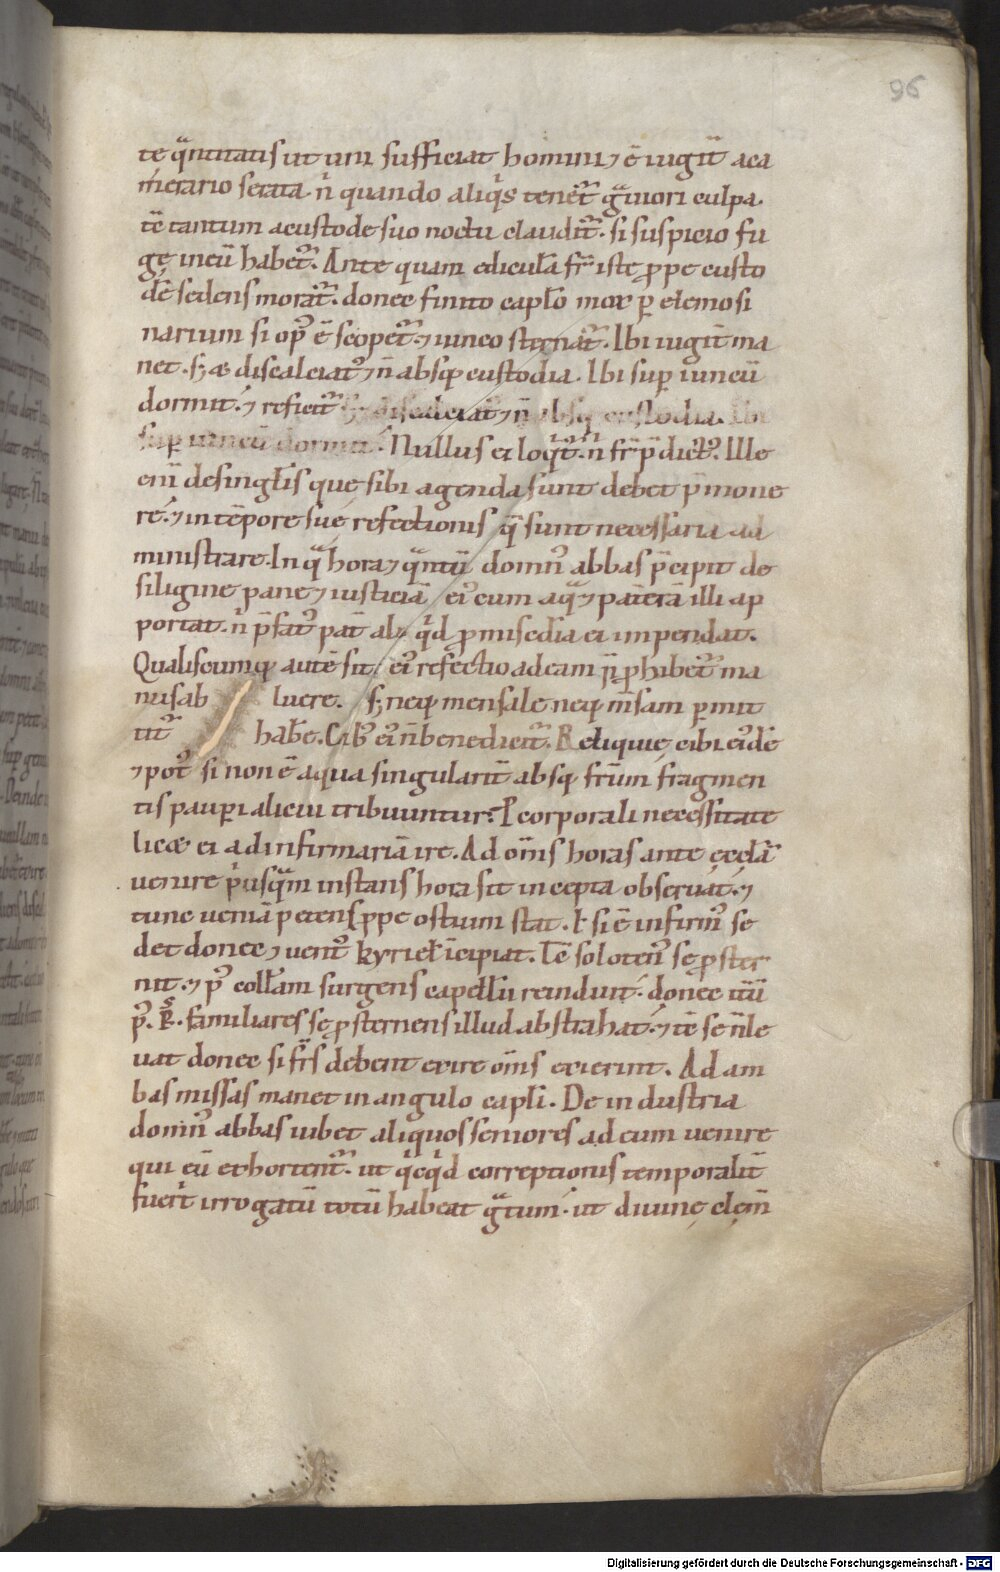 96
te q̄ntitatis ut uni sufficiat homini ⁊ ē iugit̄ a ca
m̄erario serata. n̄ quando aliq̇s tenet̄ gͣuiori culpa.
tē tantum a custode suo noctu claudit̄. si suspicio fu
gę in eū habet̄. Ante quam edicula fr̄ iste ꝓpe custo
dē sedens morat̄. donec finito capłо mox ꝑ elemosi
narium si opꝰ ē scopet̄. ⁊ iunco sternat̄. Ibi iugit̄ ma
net. sꝫ ⁊ discalciatꝰ ⁊ n̄ absqꝫ custodia. Ibi suꝑ iuncū
dormit. ⁊ reficit̄ sꝫ ⁊ discalciatꝰ ⁊ n̄ absqꝫ custodia. Ibi
suꝑ iuncū dormit. Nullus ei loqͥt̄. n̄ fr̄ p̄dictꝰ. Ille
eni de singlis quę sibi agenda sunt debet p̄mone
re. ⁊ in tēpore suę refectionis q̄ sunt necessaria ad
ministrare. In qͣ hora ⁊ qͣntū domnꝰ abbas p̄cipit de
siligine pane ⁊ iusticiā eiꝰ cum aqͣ ⁊ paterā illi ap
portat. n̄ p̄fatꝰ pat̄ alꝫ qͥd ꝓ misedia ei impendat.
Qualiscumqꝫ autē sit eiꝰ refectio ad eam n̄ ꝓhibet̄ ma
nus ab luere. sꝫ neqꝫ mensale neqꝫ m̄sam ꝑmit
tit̄ habe. Cibꝰ eiꝰ n̄ benedicit̄. Reliquię cibi eiꝰdē
⁊ potꝰ si non ē aqua singularit̄ absqꝫ frūm fragmen
tis pauꝑi alicui tribuuntur. P corporali necessitate
licæ ei ad infirmariā ire. Ad om̄s horas ante ęcclā
uenire pͥusqͣm instans hora sit incepta obseruat. ⁊
tunc ueniā petens ꝓpe ostium stat. ł si ē infirmꝰ se
det donec ⁊ uentꝰ kyrieł īcipiat. Tē solotenꝰ se ꝓster
nit. ⁊ pꝰ collam surgens capellū reinduit. donec itū
pꝰ. R̄. familiares se ꝓsternens illud abstrahat. ⁊ tē se n̄ le
uat donec si fr̄s debent exire om̄s exierint. Ad am
bas missas manet in angulo capli. De industria
domnꝰ abbas iubet aliquos seniores ad eum uenire
qui eū exhortent̄. ut qͥcqͥd correptionis temporalit̄
fuerͥt irrogatū totū habeat gͣtum. ut diuinę clem̄
Digitalisierung gefördert durch die Deutsche Forschungsgemeinschaft - DFG